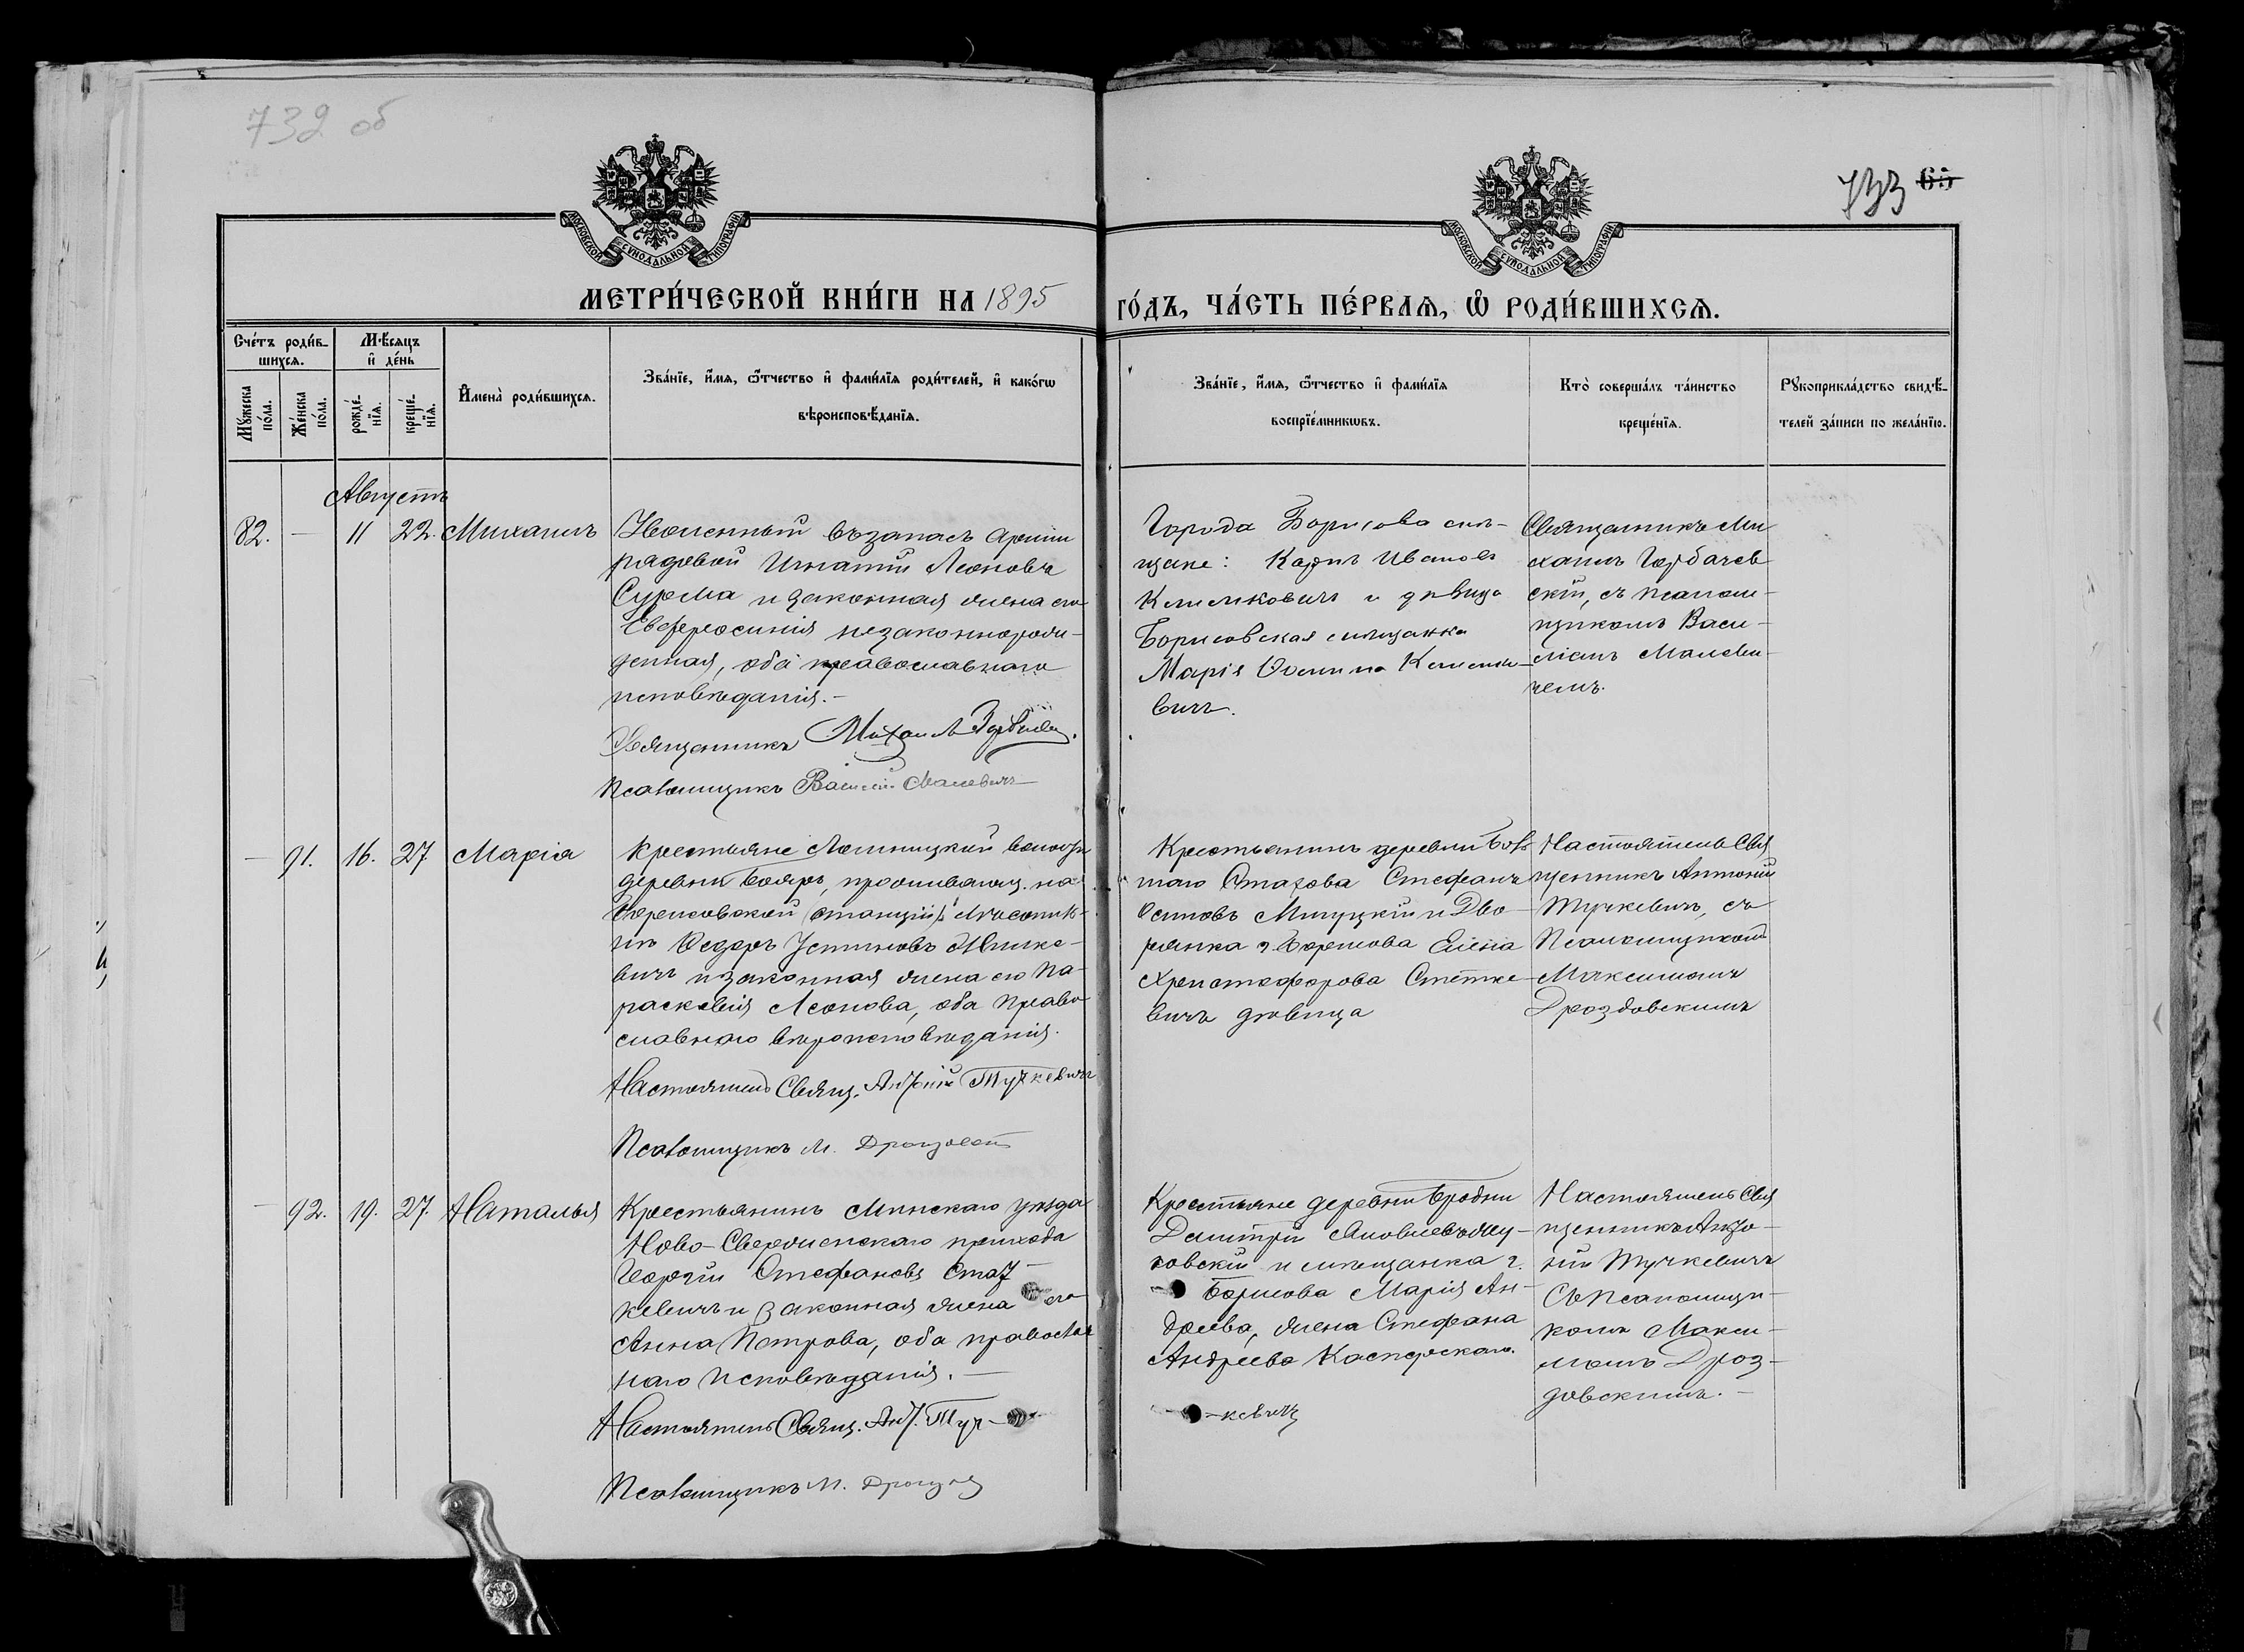 732 об
733 65
МОСКОВСКОЙ СѴНОДАЛЬНОЙ ТИПОГРАФІИ
МОСКОВСКОЙ СѴНОДАЛЬНОЙ ТИПОГРАФІИ
МЕТРИ́ЧЕСКОЙ КНИ́ГИ НА 1895
ГО́ДЪ, ЧА́СТЬ ПЕ́РВАѦ, Ѡ҆ РОДИ́ВШИХСѦ.
Сче́тъ роди́в-
шихсѧ.
Мꙋ́жеска по́ла.
Же́нска по́ла.
Мѣ́сѧцъ
и҆ де́нь
рожде́-нїѧ.
креще́-нїѧ.
И҆мена̀ роди́вшихсѧ.
Зва́нїе, и҆́мѧ, ѻ҆́тчество и҆ фами́лїѧ роди́телей, и҆ како́гѡ
вѣроисповѣ́данїѧ.
Зва́нїе, и҆́мѧ, ѻ҆́тчество и҆ фами́лїѧ
воспрїе́мникѡвъ.
Кто̀ соверша́лъ та́инство
креще́нїѧ.
Рꙋкоприкла́дство свидѣ́-
телей за́писи по жела́нїю.
Августъ
82. — 11 22. Михаилъ
Уволенный въ запасъ арміи
рядовой Игнатій Леоновъ
Сурма и законная жена его
Евфросинія незаконнорож-
денная, оба православнаго
исповѣданія. —
Священникъ Михаилъ
Псаломщикъ Василій Малевичъ
Города Борисова мѣ-
щане: Карпъ Ивановъ
Климковичъ и дѣвица
Борисовская мѣщанка
Марія Осипова
вичъ.
Священникъ Ми
хаилъ Горбачев
скій, съ псалом-
щикомъ Васи-
ліемъ Малеви-
чемъ.
— 91. 16. 27. Марія
Крестьяне Лошницкой волости
деревни Бояръ, проживающ. на
Борисовской станціи
Ѳедоръ Устиновъ
вичъ и законная жена его Па-
раскевія Леонова, оба право
славнаго вѣроисповѣданія.
Настоятель Свящ. Антоній Тучкевичъ
Псаломщикъ М. Дроздовск
Крестьянинъ деревни
Стахова Стефанъ
Осиповъ и Дво-
рянка г. Борисова Елена
Христофорова Стетке-
вичъ дѣвица
Настоятель Свя
щенникъ Антоній
Тучкевичъ, съ
Псаломщикомъ
Максимомъ
Дроздовскимъ
— 92. 19. 27. Наталья
Крестьянинъ Минскаго уѣзда
Ново-Сверженскаго прихода
Георгій Стефановъ Стах-
кевичъ и законная жена его
Анна Петрова, оба православ
наго исповѣданія. —
Настоятель Свящ. Ант. Туч-
-кевичъ
Псаломщикъ М. Дрозд
Крестьяне деревни Бродни
Димитрій
ховскій и мѣщанка г.
Борисова Марія Ан-
дреева, жена Стефана
Андреева Касперскаго.
Настоятель Свя
щенникъ Анто-
ній Тучкевичъ
Съ Псаломщи-
комъ Макси-
момъ Дроз-
довскимъ. —